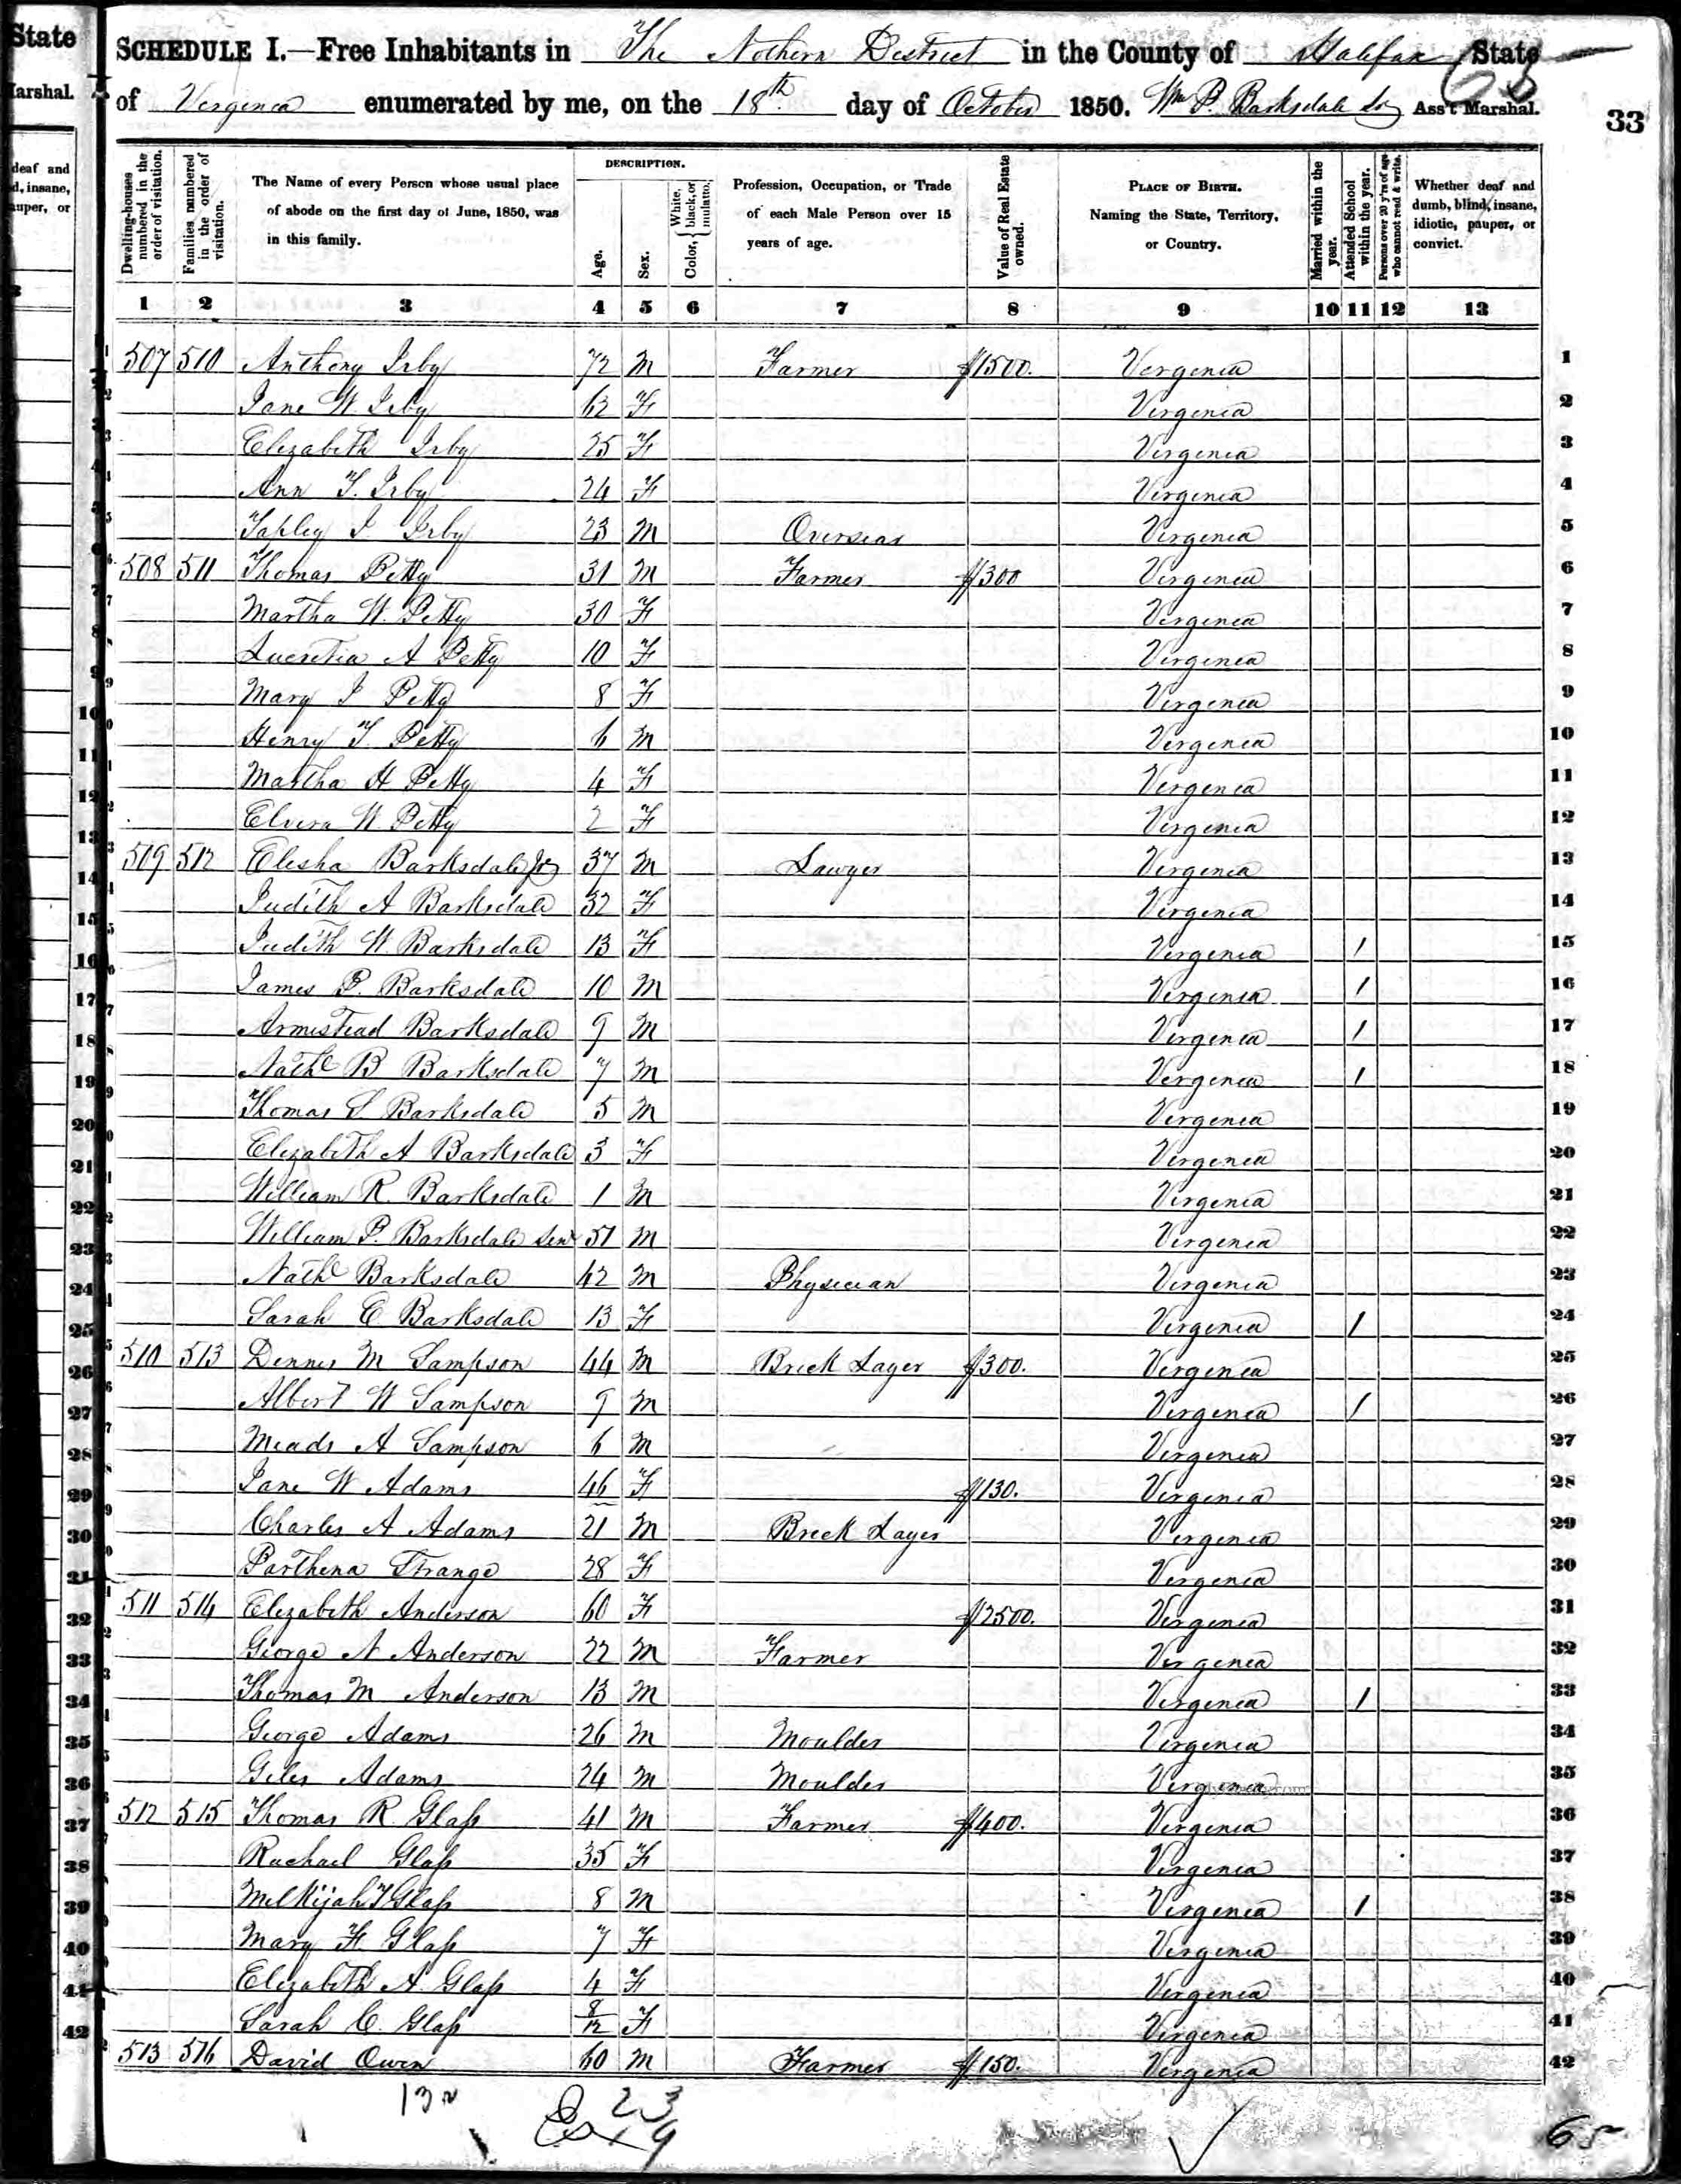 State
Marshal.
deaf and
d, insane,
auper, or
SCHEDULE I.—Free Inhabitants in The Nothern District in the County of Halifax State
of Virginia enumerated by me, on the 18th day of October 1850. Wm P. Barksdale Ass't Marshal.
33
Dwelling-houses numbered in the order of visitation.
Families numbered in the order of visitation.
The Name of every Person whose usual place of abode on the first day of June, 1850, was in this family.
DESCRIPTION.
Age.
Sex.
Color, White, black, or mulatto.
Profession, Occupation, or Trade of each Male Person over 15 years of age.
Value of Real Estate owned.
PLACE OF BIRTH. Naming the State, Territory, or Country.
Married within the year.
Attended School within the year.
Persons over 20 y'rs of age who cannot read & write.
Whether deaf and dumb, blind, insane, idiotic, pauper, or convict.
1 2 3 4 5 6 7 8 9 10 11 12 13
507 510 Anthony Irby 72 M Farmer $1500. Virginia 1
Jane W Irby 62 F Virginia 2
Elizabeth Irby 25 F Virginia 3
Ann T. Irby 24 F Virginia 4
Tapley J Irby 23 M Oversear Virginia 5
508 511 Thomas Petty 31 M Farmer $300 Virginia 6
Martha W. Petty 30 F Virginia 7
Lucretia A Petty 10 F Virginia 8
Mary J Petty 8 F Virginia 9
Henry T. Petty 6 M Virginia 10
Martha H Petty 4 F Virginia 11
Elvira W. Petty 2 F Virginia 12
509 512 Elisha Barksdale Jr 37 M Lawyer Virginia 13
Judith A Barksdale 32 F Virginia 14
Judith W. Barksdale 13 F Virginia 1 15
James P. Barksdale 10 M Virginia 1 16
Armistead Barksdale 9 M Virginia 1 17
Nathl B Barksdale 7 M Virginia 1 18
Thomas S Barksdale 5 M Virginia 19
Elizabeth A Barksdale 3 F Virginia 20
William R. Barksdale 1 M Virginia 21
William P. Barksdale Senr 51 M Virginia 22
Nathl Barksdale 42 M Physician Virginia 23
Sarah C Barksdale 13 F Virginia 1 24
510 513 Dennis M Sampson 44 M Brick Layer $300. Virginia 25
Albert W Sampson 9 M Virginia 1 26
Meads A Sampson 6 M Virginia 27
Jane W Adams 46 F $130. Virginia 28
Charles A Adams 21 M Brick Layer Virginia 29
Parthena Strange 28 F Virginia 30
511 514 Elizabeth Anderson 60 F $2500. Virginia 31
George N Anderson 22 M Farmer Virginia 32
Thomas M Anderson 13 M Virginia 1 33
George Adams 26 M Moulder Virginia 34
Giles Adams 24 M Moulder Virginia 35
512 515 Thomas R. Glass 41 M Farmer $400. Virginia 36
Rachael Glass 35 F Virginia 37
Melkijah T Glass 8 M Virginia 1 38
Mary F. Glass 7 F Virginia 39
Elizabeth A. Glass 4 F Virginia 40
Sarah C. Glass 8/12 F Virginia 41
513 516 David Owen 60 M Farmer $150. Virginia 42
23
65